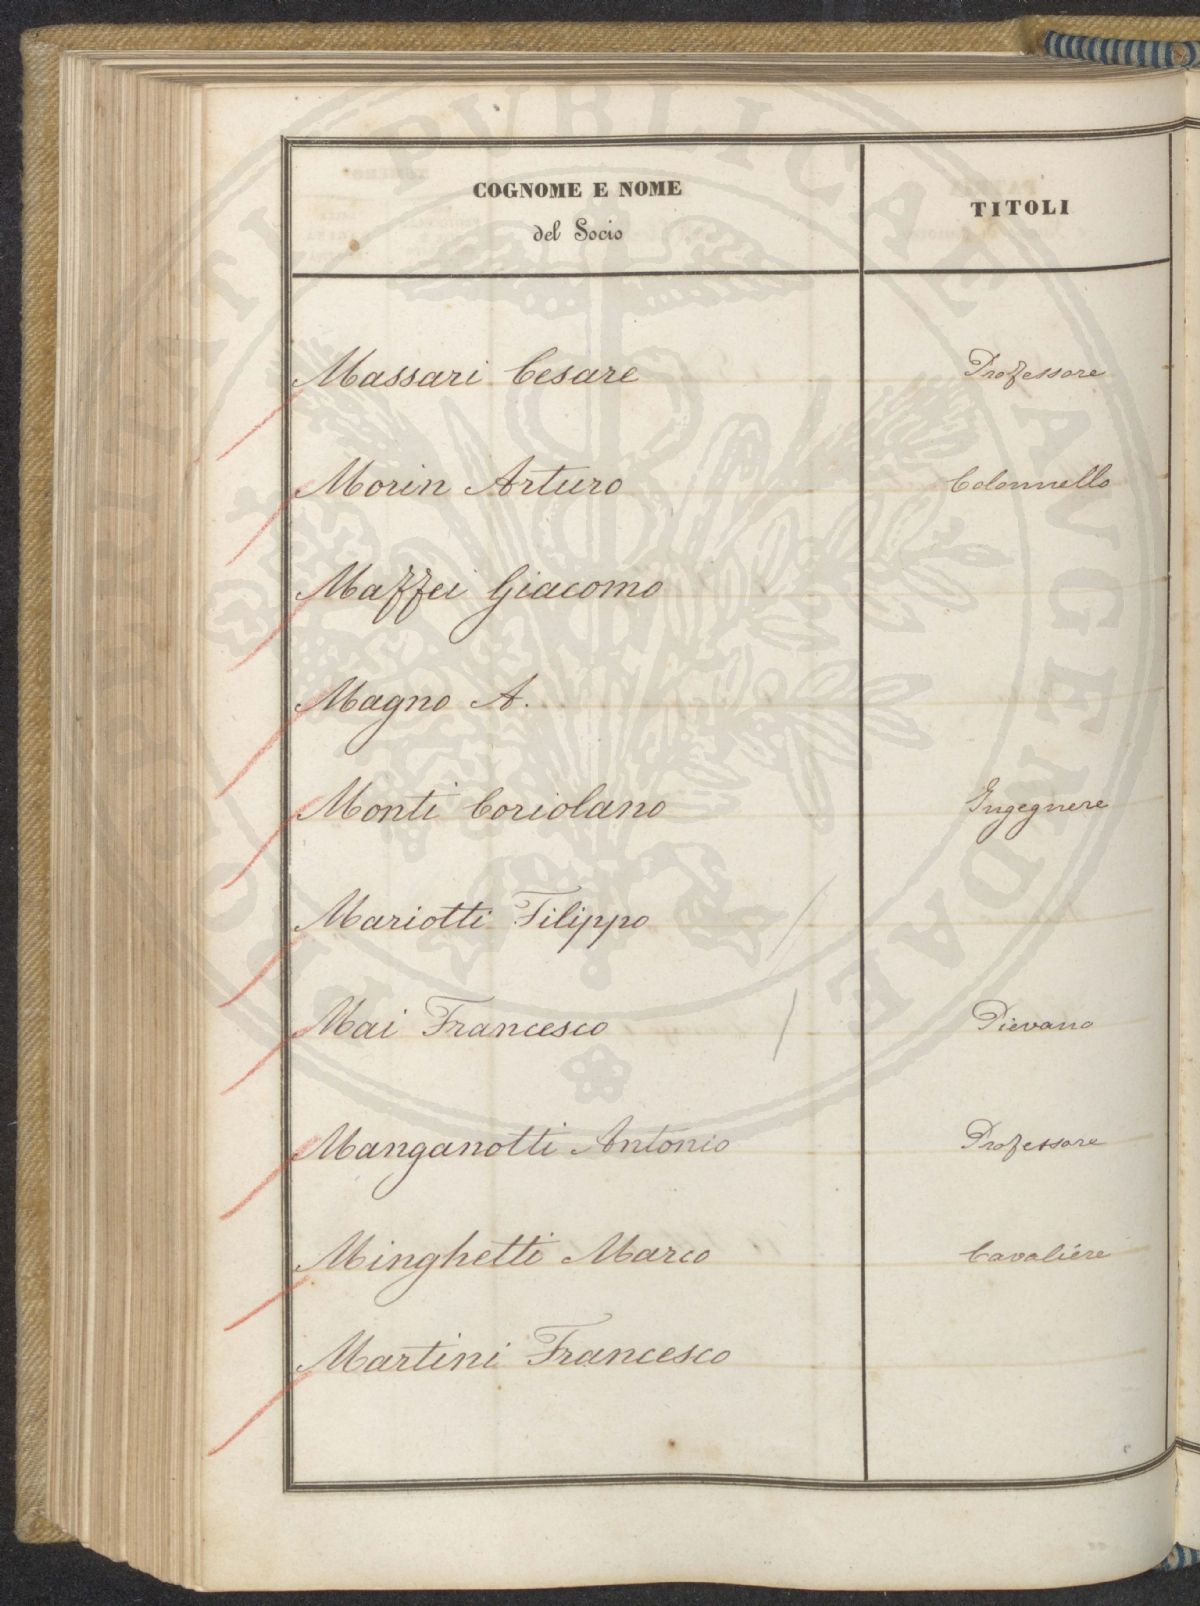 COGNOME E NOME
del Socio
TITOLI
Massari Cesare Professore
Morin Arturo Colonnello
Maffei Giacomo
Magno A.
Monti Coriolano Ingegnere
Mariotti Filippo
Mai Francesco Pievano
Manganotti Antonio Professore
Minghetti Marco Cavaliere
Martini Francesco
PROSPERITATI PVBLICAE AVGENDAE